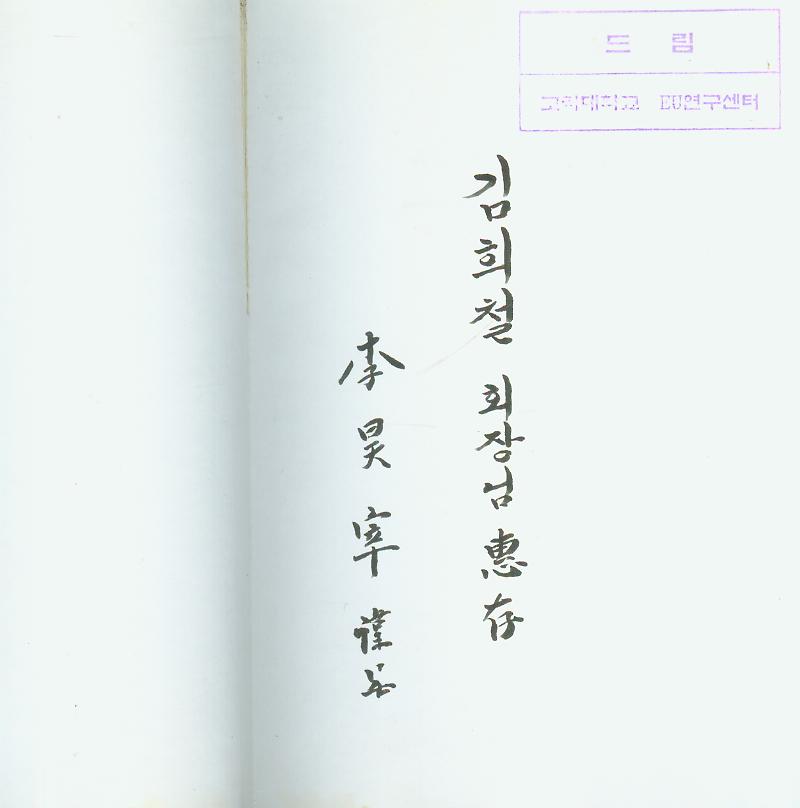 드림
고려대학교 EU연구센터
김희철 회장님 惠存
李昊宰 謹呈